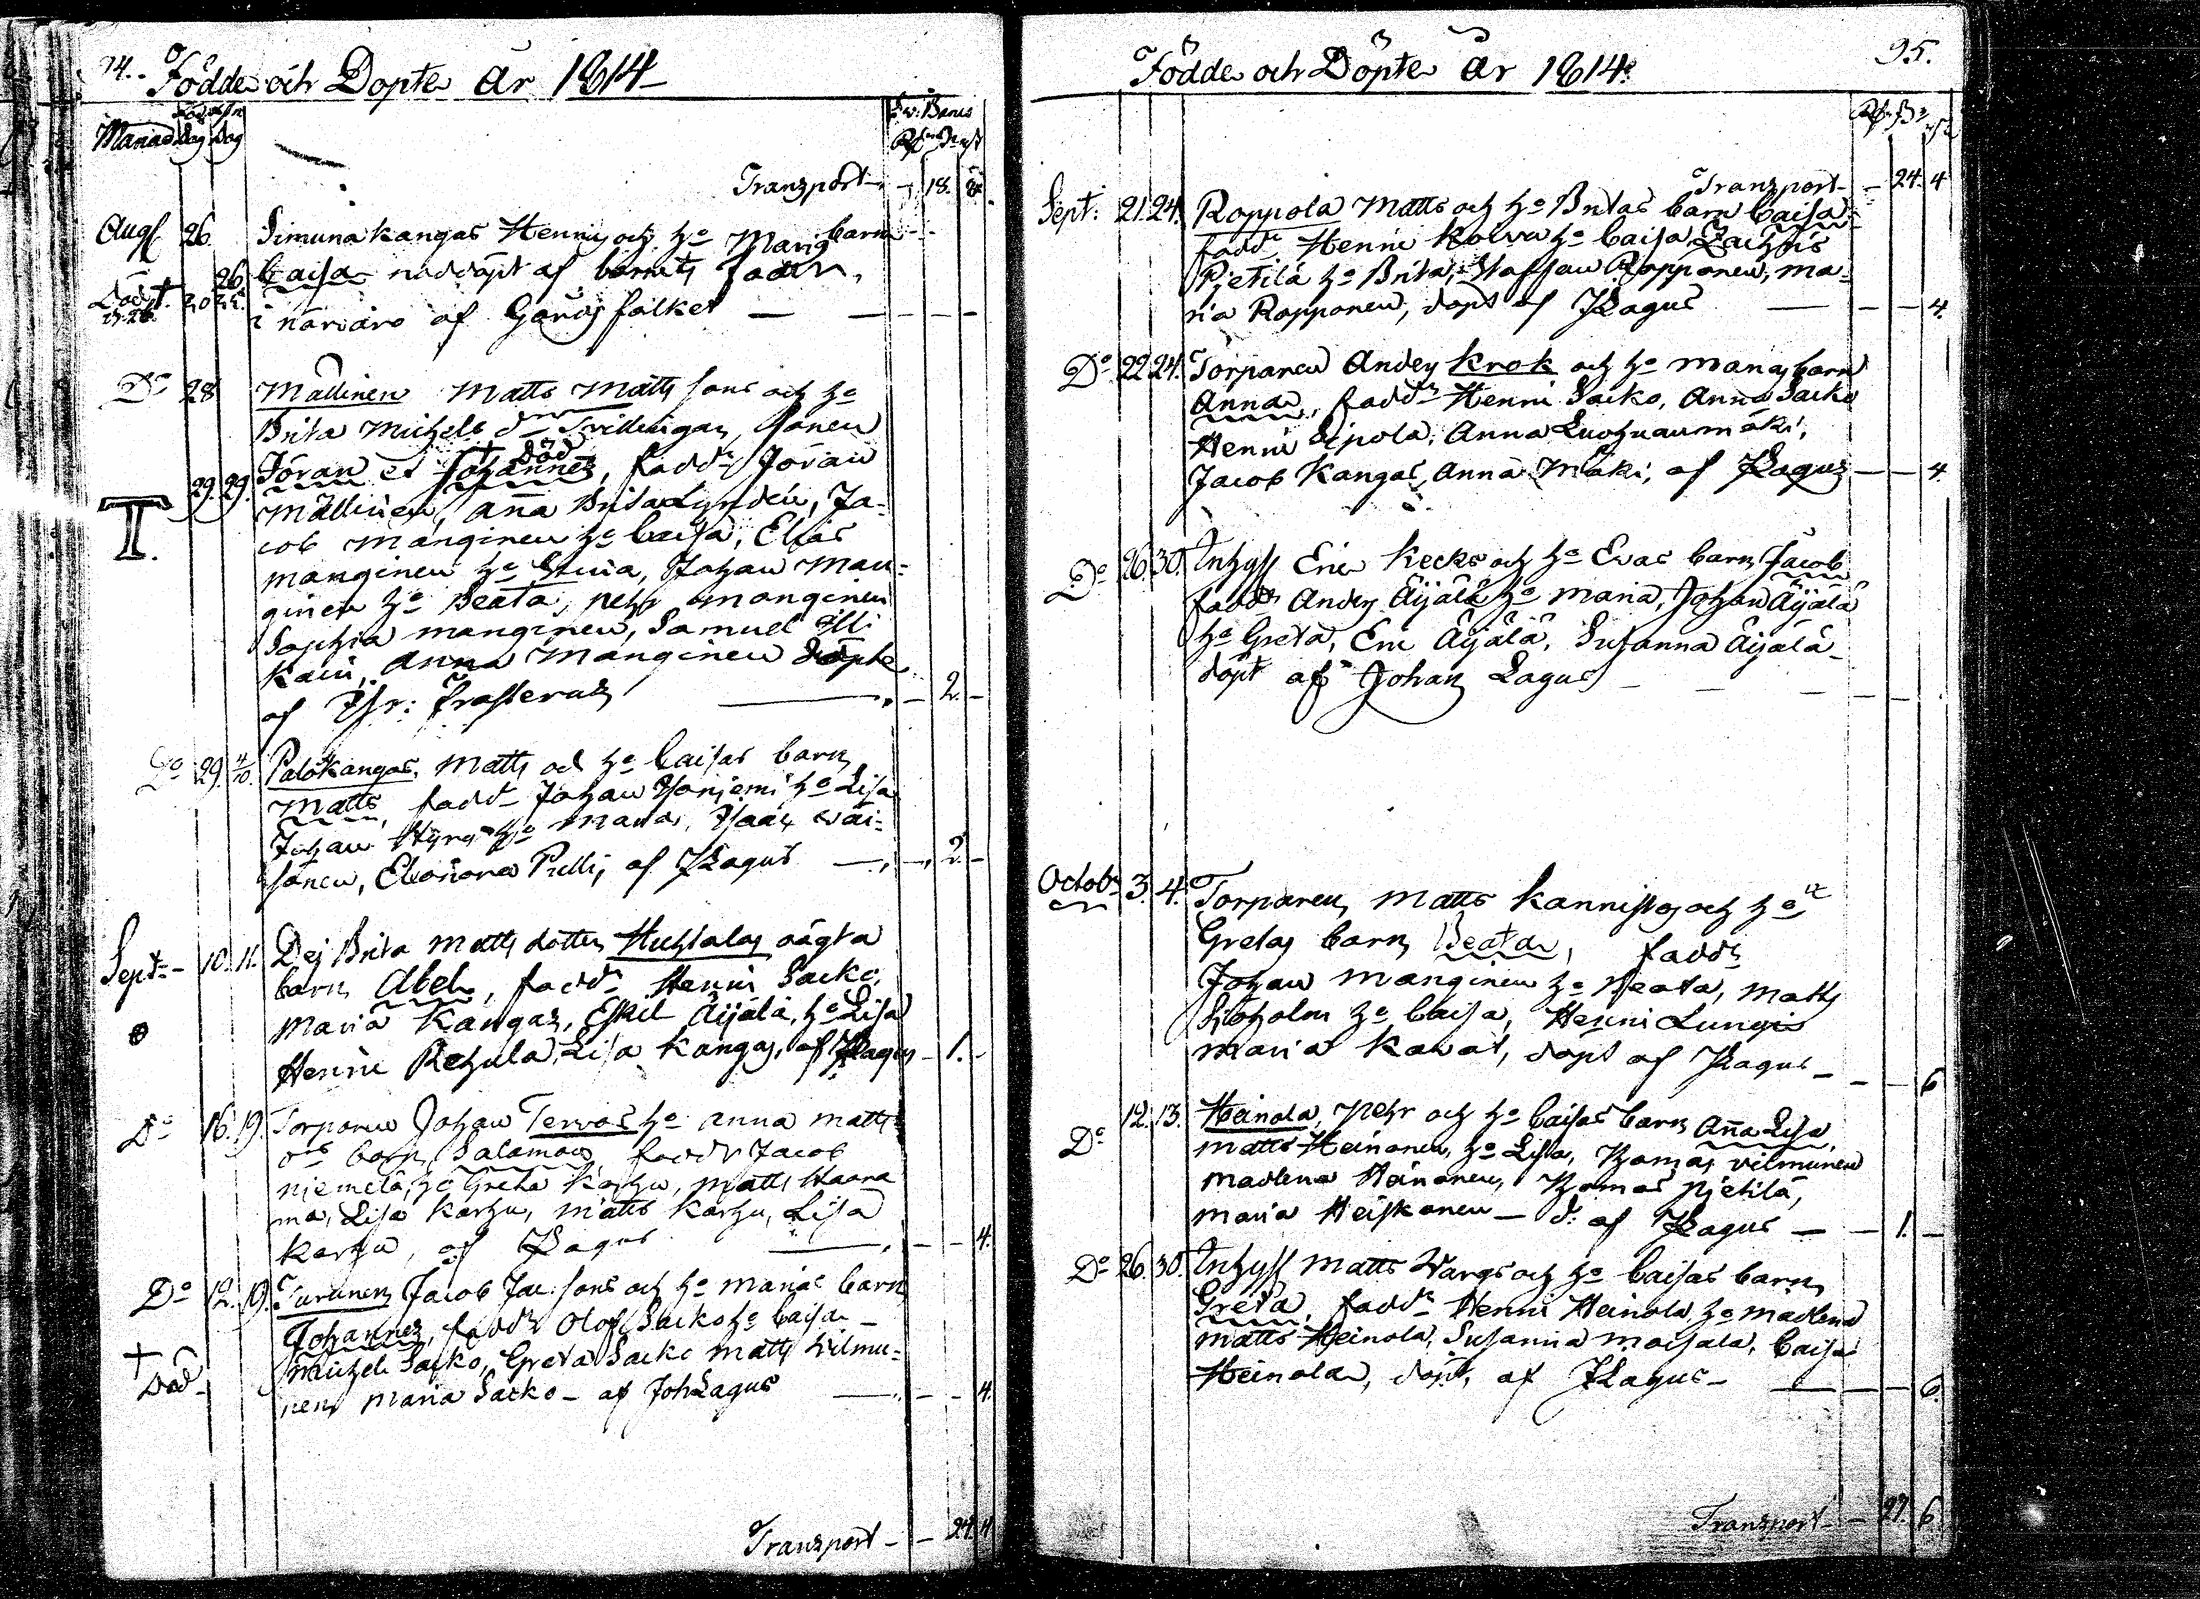 94. Födde och Döpte år 1814
Månad Dag Dag
Transport 18.
Aug 26 Simunakangas Henric och hu Marias barn
26 Caisa nöddöpt af barnets fader
Död 30 i närvaro af Gårdsfolket
Do 28 Mällinen Matts Matts sons och hu
Brita Michels dr Tvillingar, Sönerne
29. 29. Jöran et Johannes, död faddr Jöran
Mällinen, Anna Brita Lyndén, Ja=
T. cob Manginen hu Caisa, Elias
Manginen hu Stina, Johan Man=
ginen hu Beata, Pehr Manginen
Sophia Manginen, Samuel
Anna Manginen döpte
af Hr: Frosterus 2.
Do 29. 4/10. Palokangas, Matts och hu Caisas barn
Matts, faddr Johan Honjemi hu Lisa
Johan Hyry hu Maria, Isaac Wäi=
sänen, Eleonora Pelli, af JLagus 2.
Sept 10. 11. Pig Brita Matts dotter Huhtalas oägta
barn Abel, faddr Henric Sacko,
Maria Kangas, Eskel Äijälä, hu Lisa
Henric Rehula, Lisa Kangas, af JLagus 1.
Do 16. 19. Torparen Johan Tervos hu Anna Matts
drs barn Salomon, faddr Jacob
Niemelä, hu Greta Karhu, Matts Haara
ma, Lisa Karhu, Matts Karhu, Lisa
Karhu, af JLagus 4.
Do 12. 19. Turunen Jacob Jac: sons och hu Marias barn
Johannes, faddr Olof Sacko hu Caisa
Michel Sacko, Greta Sacko Matts Wilmu=
† Död nen, Maria Sacko - af Joh Lagus 4.
Transport 24. 4
Födde och Döpte år 1814. 95.
Transport 24. 4
Sept: 21. 24. Roppola Matts och hu Britas barn Caisa
faddr Henric Koive hu Caisa, Zachris
Pjetilä hu Brita, Staffan Ropponen, Ma=
ria Ropponen, döpt af JLagus 4.
Do 22. 24. Torparen Anders Krok och hu Marias barn
Anna, faddr Henric Sacko, Anna Sacko
Henric Sipola, Anna Luohuanmäki,
Jacob Kangas, Anna Mäki, af JLagus 4.
Do 26. 30. Inhys Eric Kecks och hu Evas barn Jacob
faddr Anders Äijälä hu Maria, Johan Äijälä
hu Greta, Eric Äijälä, Susanna Äijälä
döpt af Johan Lagus
Octobr 3. 4. Torparen Matts Kannistos och hu
Gretas barn Beata, faddr
Johan Manginen hu Beata, Matts
Sjöholm hu Caisa, Henric Lungis
Maria Kawas, döpt af JLagus 6
Do 12. 13. Heinola, Pehr och hu Caisas barn Anna Lisa,
Matts Heinonen, hu Lisa, Thomas Wilmunen
Madlena Heinonen, Thomas Pjetilä,
Maria Heiskanen - d: af JLagus 1.
Do 26. 30. Inhys Matts Wargs och hu Caisas barn
Greta, faddr Henric Heinola, hu Madlena
Matts Heinola, Susanna Maisala, Caisa
Heinola, döpt, af JLagus 6.
Transport 27. 6